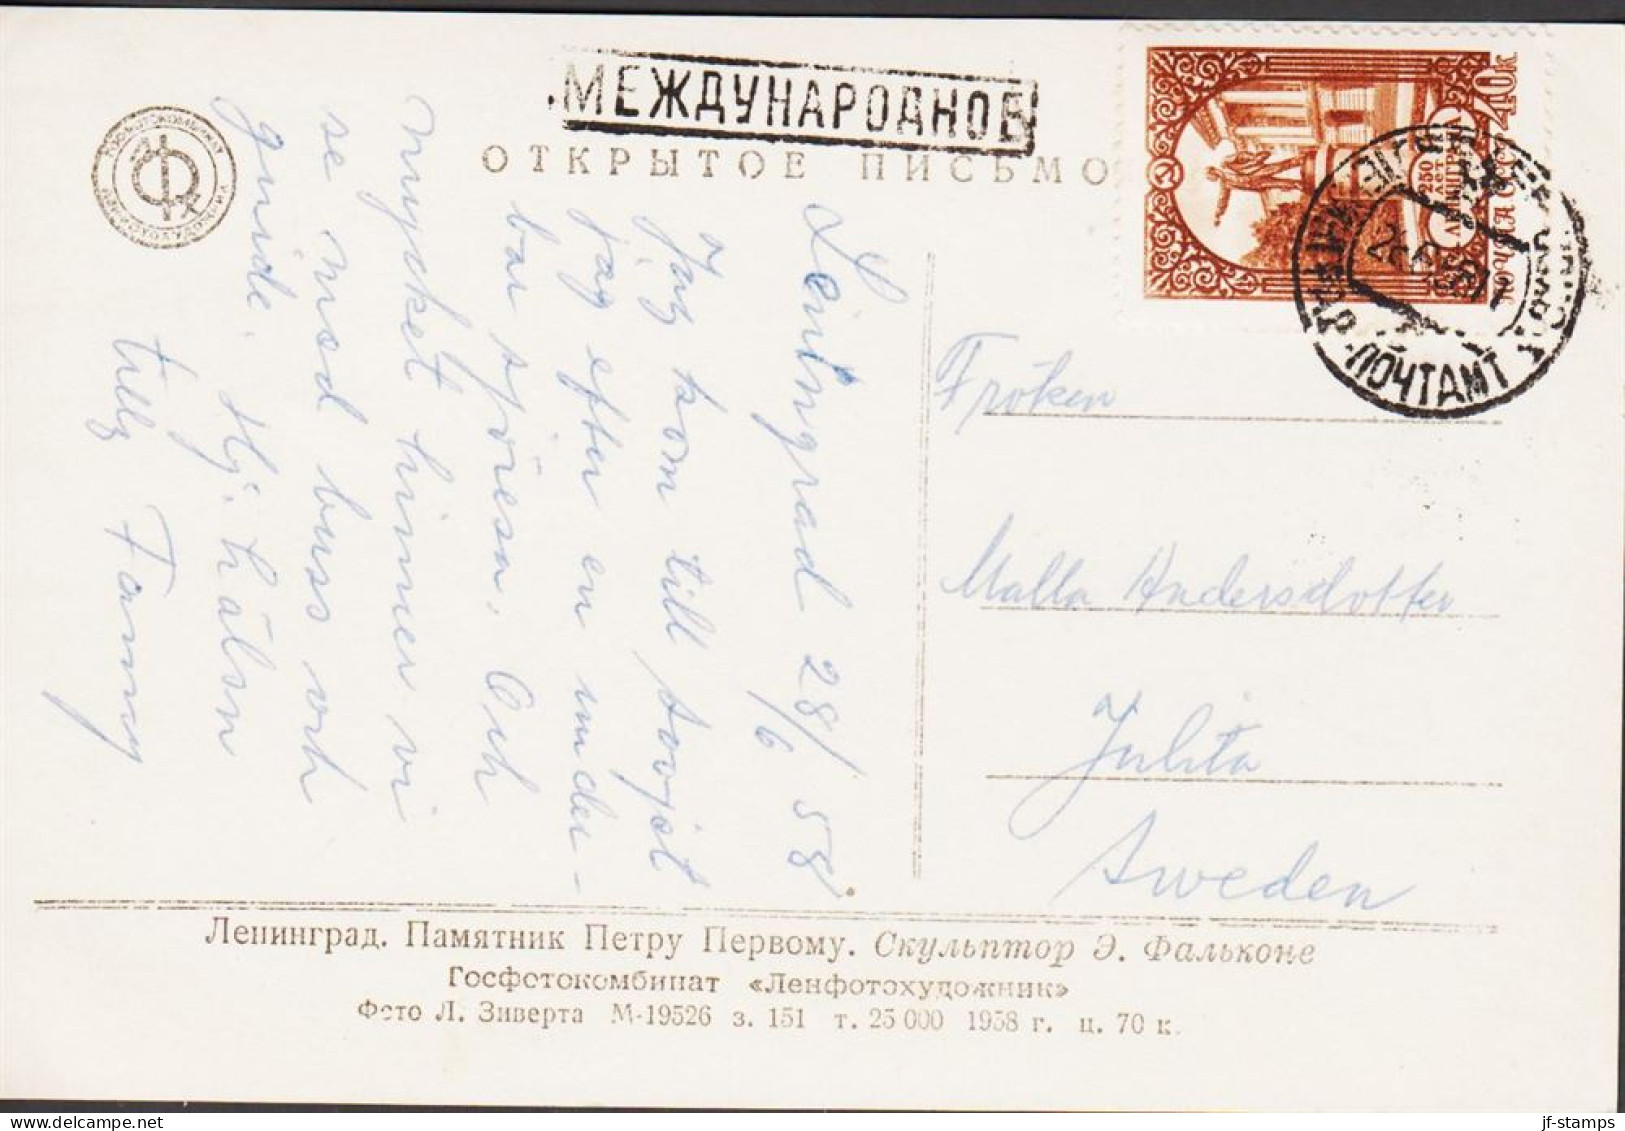 МЕЖДУНАРОДНОЕ
ОТКРЫТОЕ ПИСЬМО
250
ЛЕТ
ЛЕНИНГРАД
40К
ПОЧТА СССР
ПОЧТАМТ
Leningrad 28/6 58
Jag kom till sovjet
jag efter en under-
bar sjöresa. Och
mycket hinner vi
se med buss och
guide.
Hj. hälsn
Fanny
Fröken
Malla Andersdotter
Julita
Sweden
Ленинград. Памятник Петру Первому. Скульптор Э. Фальконе
Госфотокомбинат «Ленфотохудожник»
Фото Л. Зиверта М-19526 з. 151 т. 25 000 1958 г. ц. 70 к.
jf-stamps